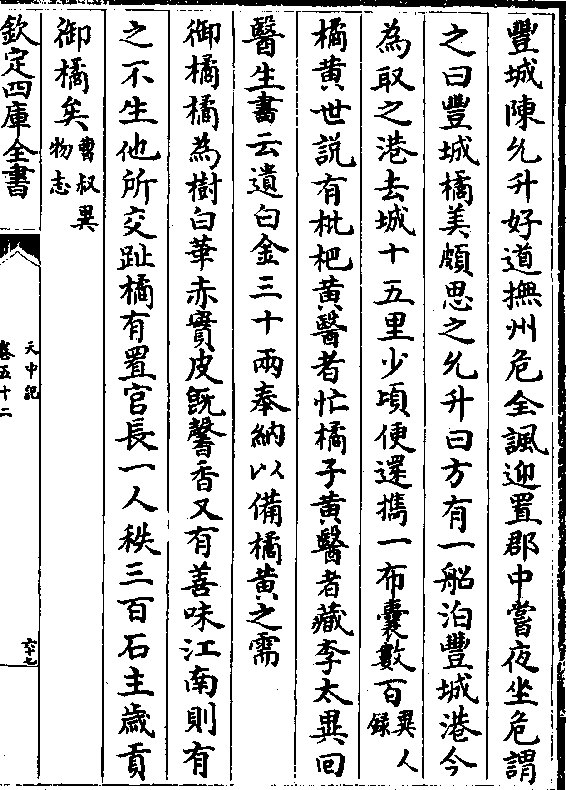 豐城陳允升好道撫州危全諷迎置郡中嘗夜坐危謂
之曰豐城橘美頗思之允升曰方有一船泊豐城港今
為取之港去城十五里少頃便還攜一布囊數百異人
録
橘黄世説有枇杷黄醫者忙橘子黄醫者藏李太異回
醫生書云遺白金三十兩奉納以備橘黄之需
御橘橘為樹白華赤實皮既馨香又有善味江南則有
之不生他所交趾橘有置官長一人秩三百石主歲貢
御橘矣曹叔異
物志
欽定四庫全書
天中記
卷五十二
六十七